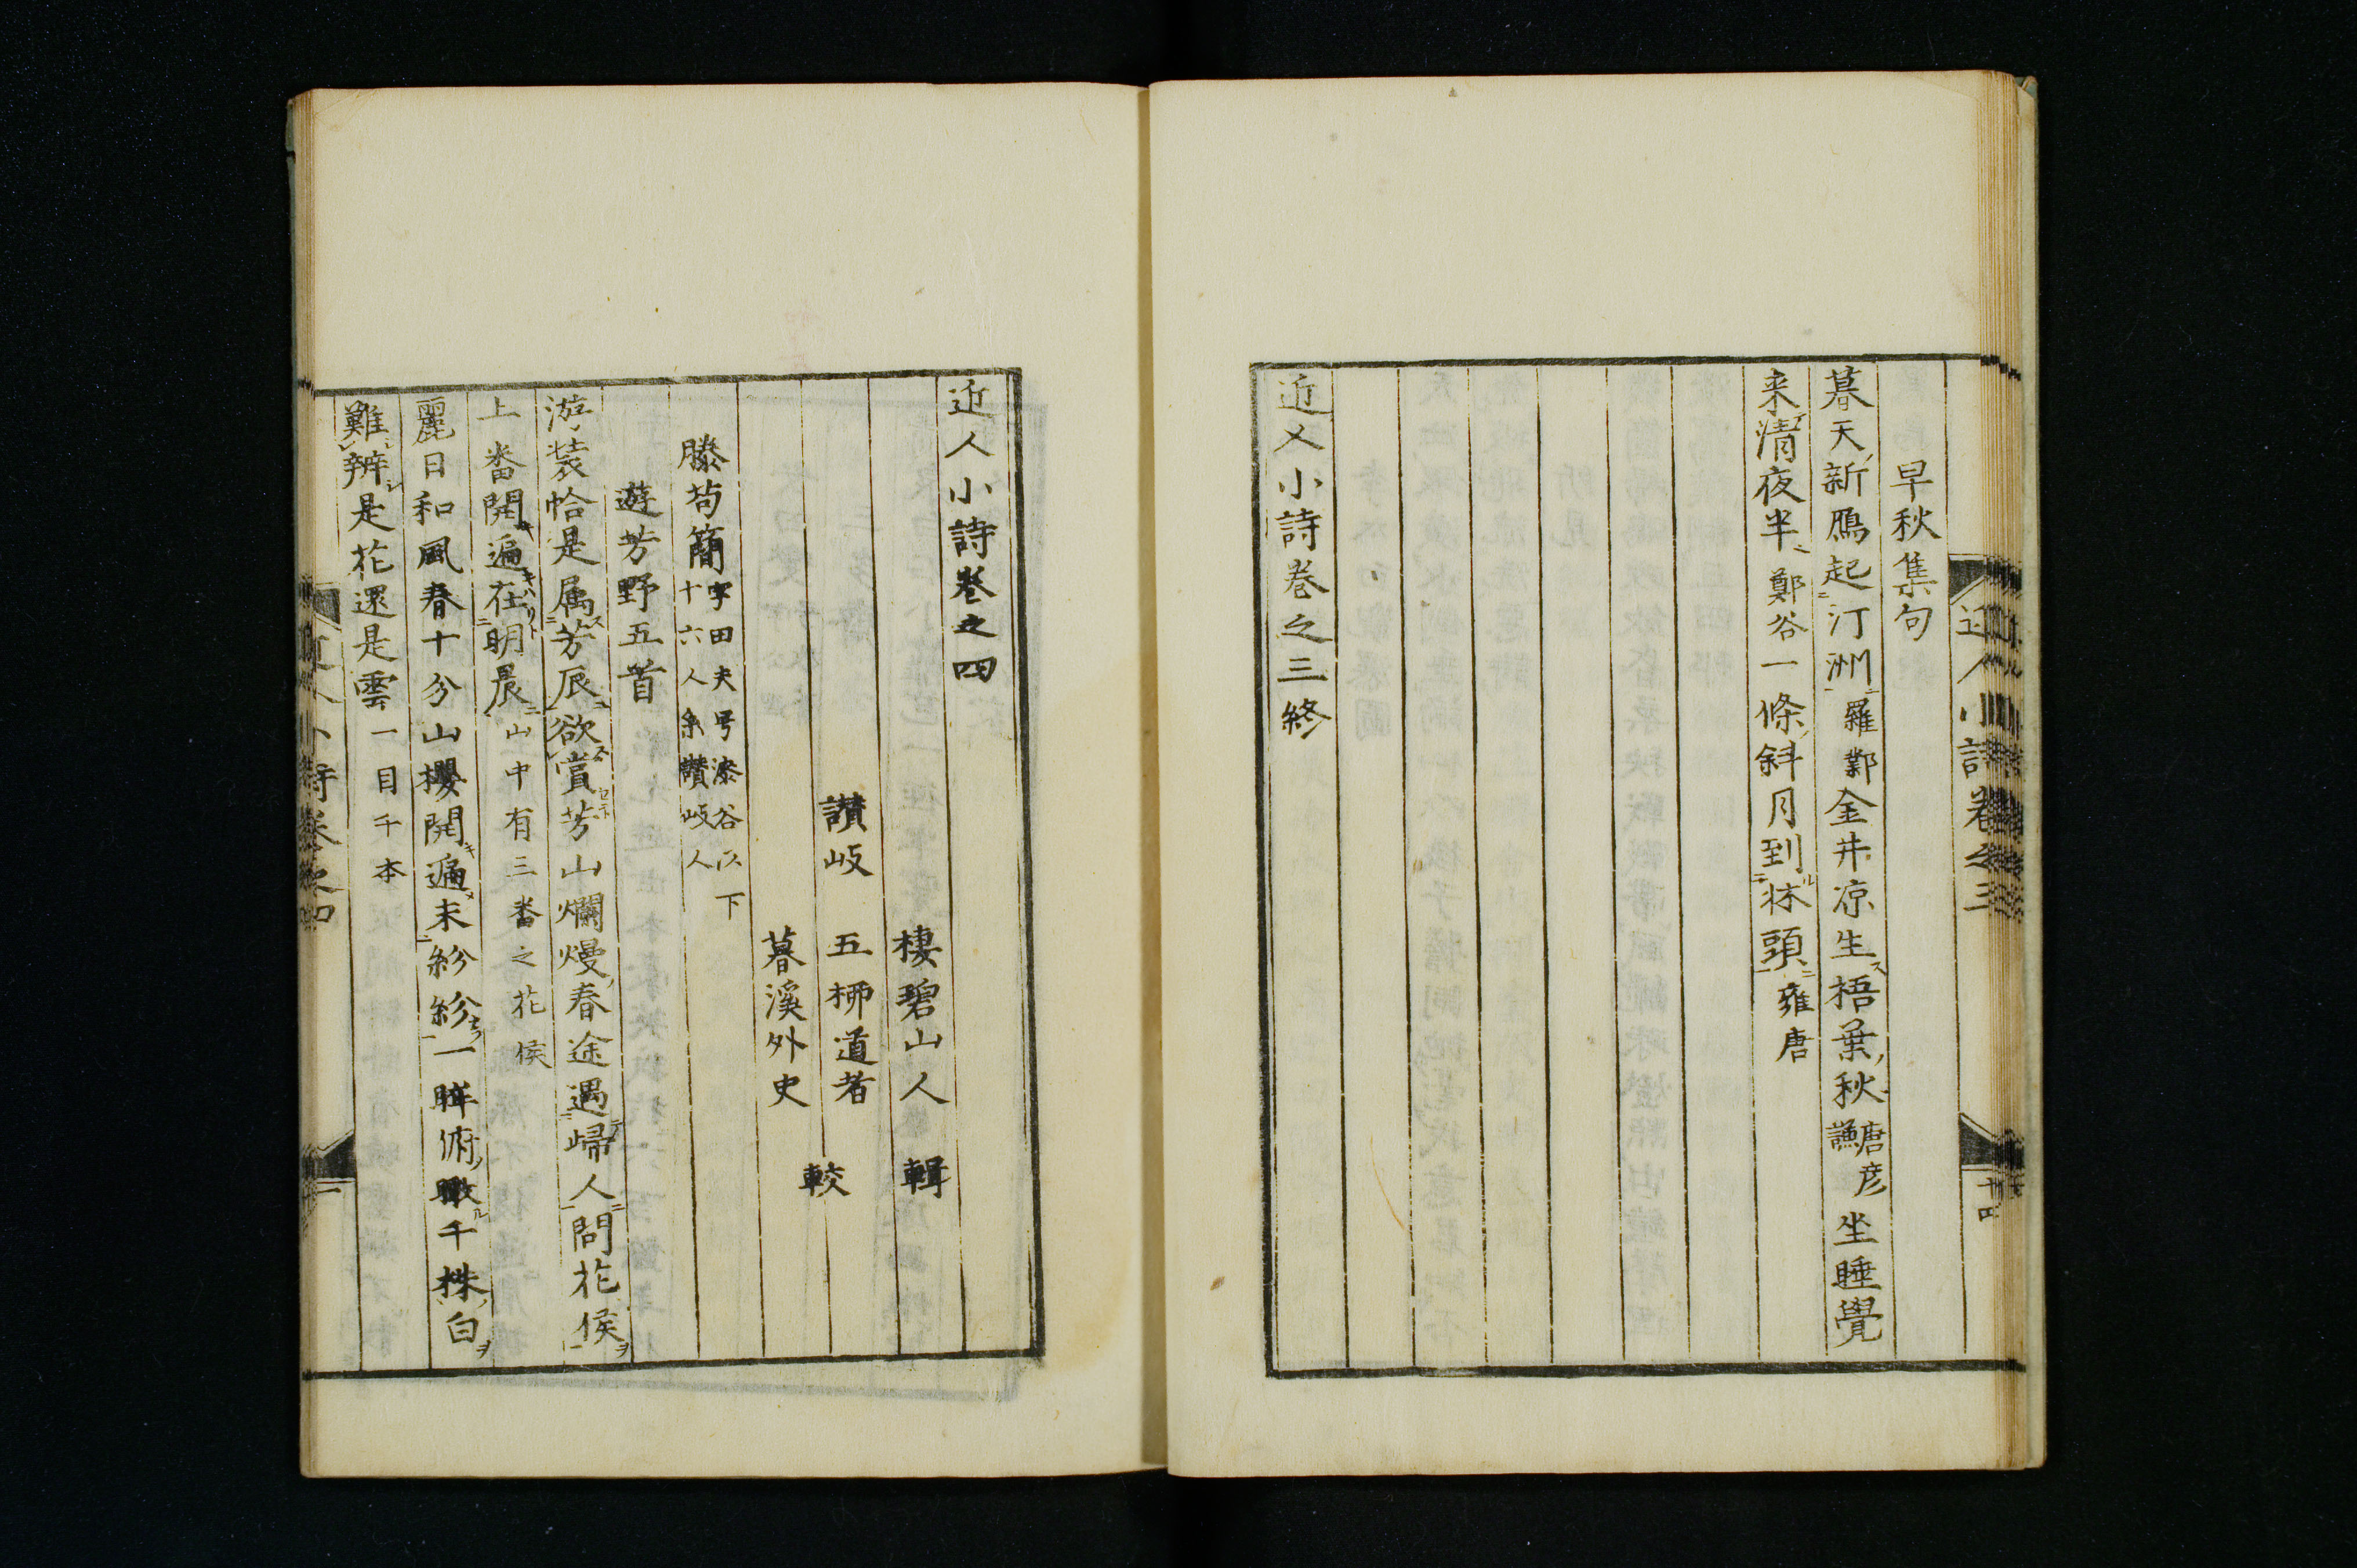 早秋集句
暮天新鴈起汀洲羅鄴金井凉生梧葉秋唐彦謙坐睡覺
来清夜半鄭谷一條斜月到牀頭雍唐
近人小詩卷之三終
近人小詩卷之三
十四
近人小詩卷之四
棲碧山人輯
讃岐 五桺道者
暮溪外史
較
滕苟簡字田夫号漆谷以下
十六人系讃岐人
遊芳野五首
游装恰是属芳辰欲賞芳山爛熳春途遇歸人問花候
上番開遍在明晨山中有三番之花候
麗日和風春十分山櫻開遍未紛紛一眸俯瞰千株白
難辨是花還是雲一目千本